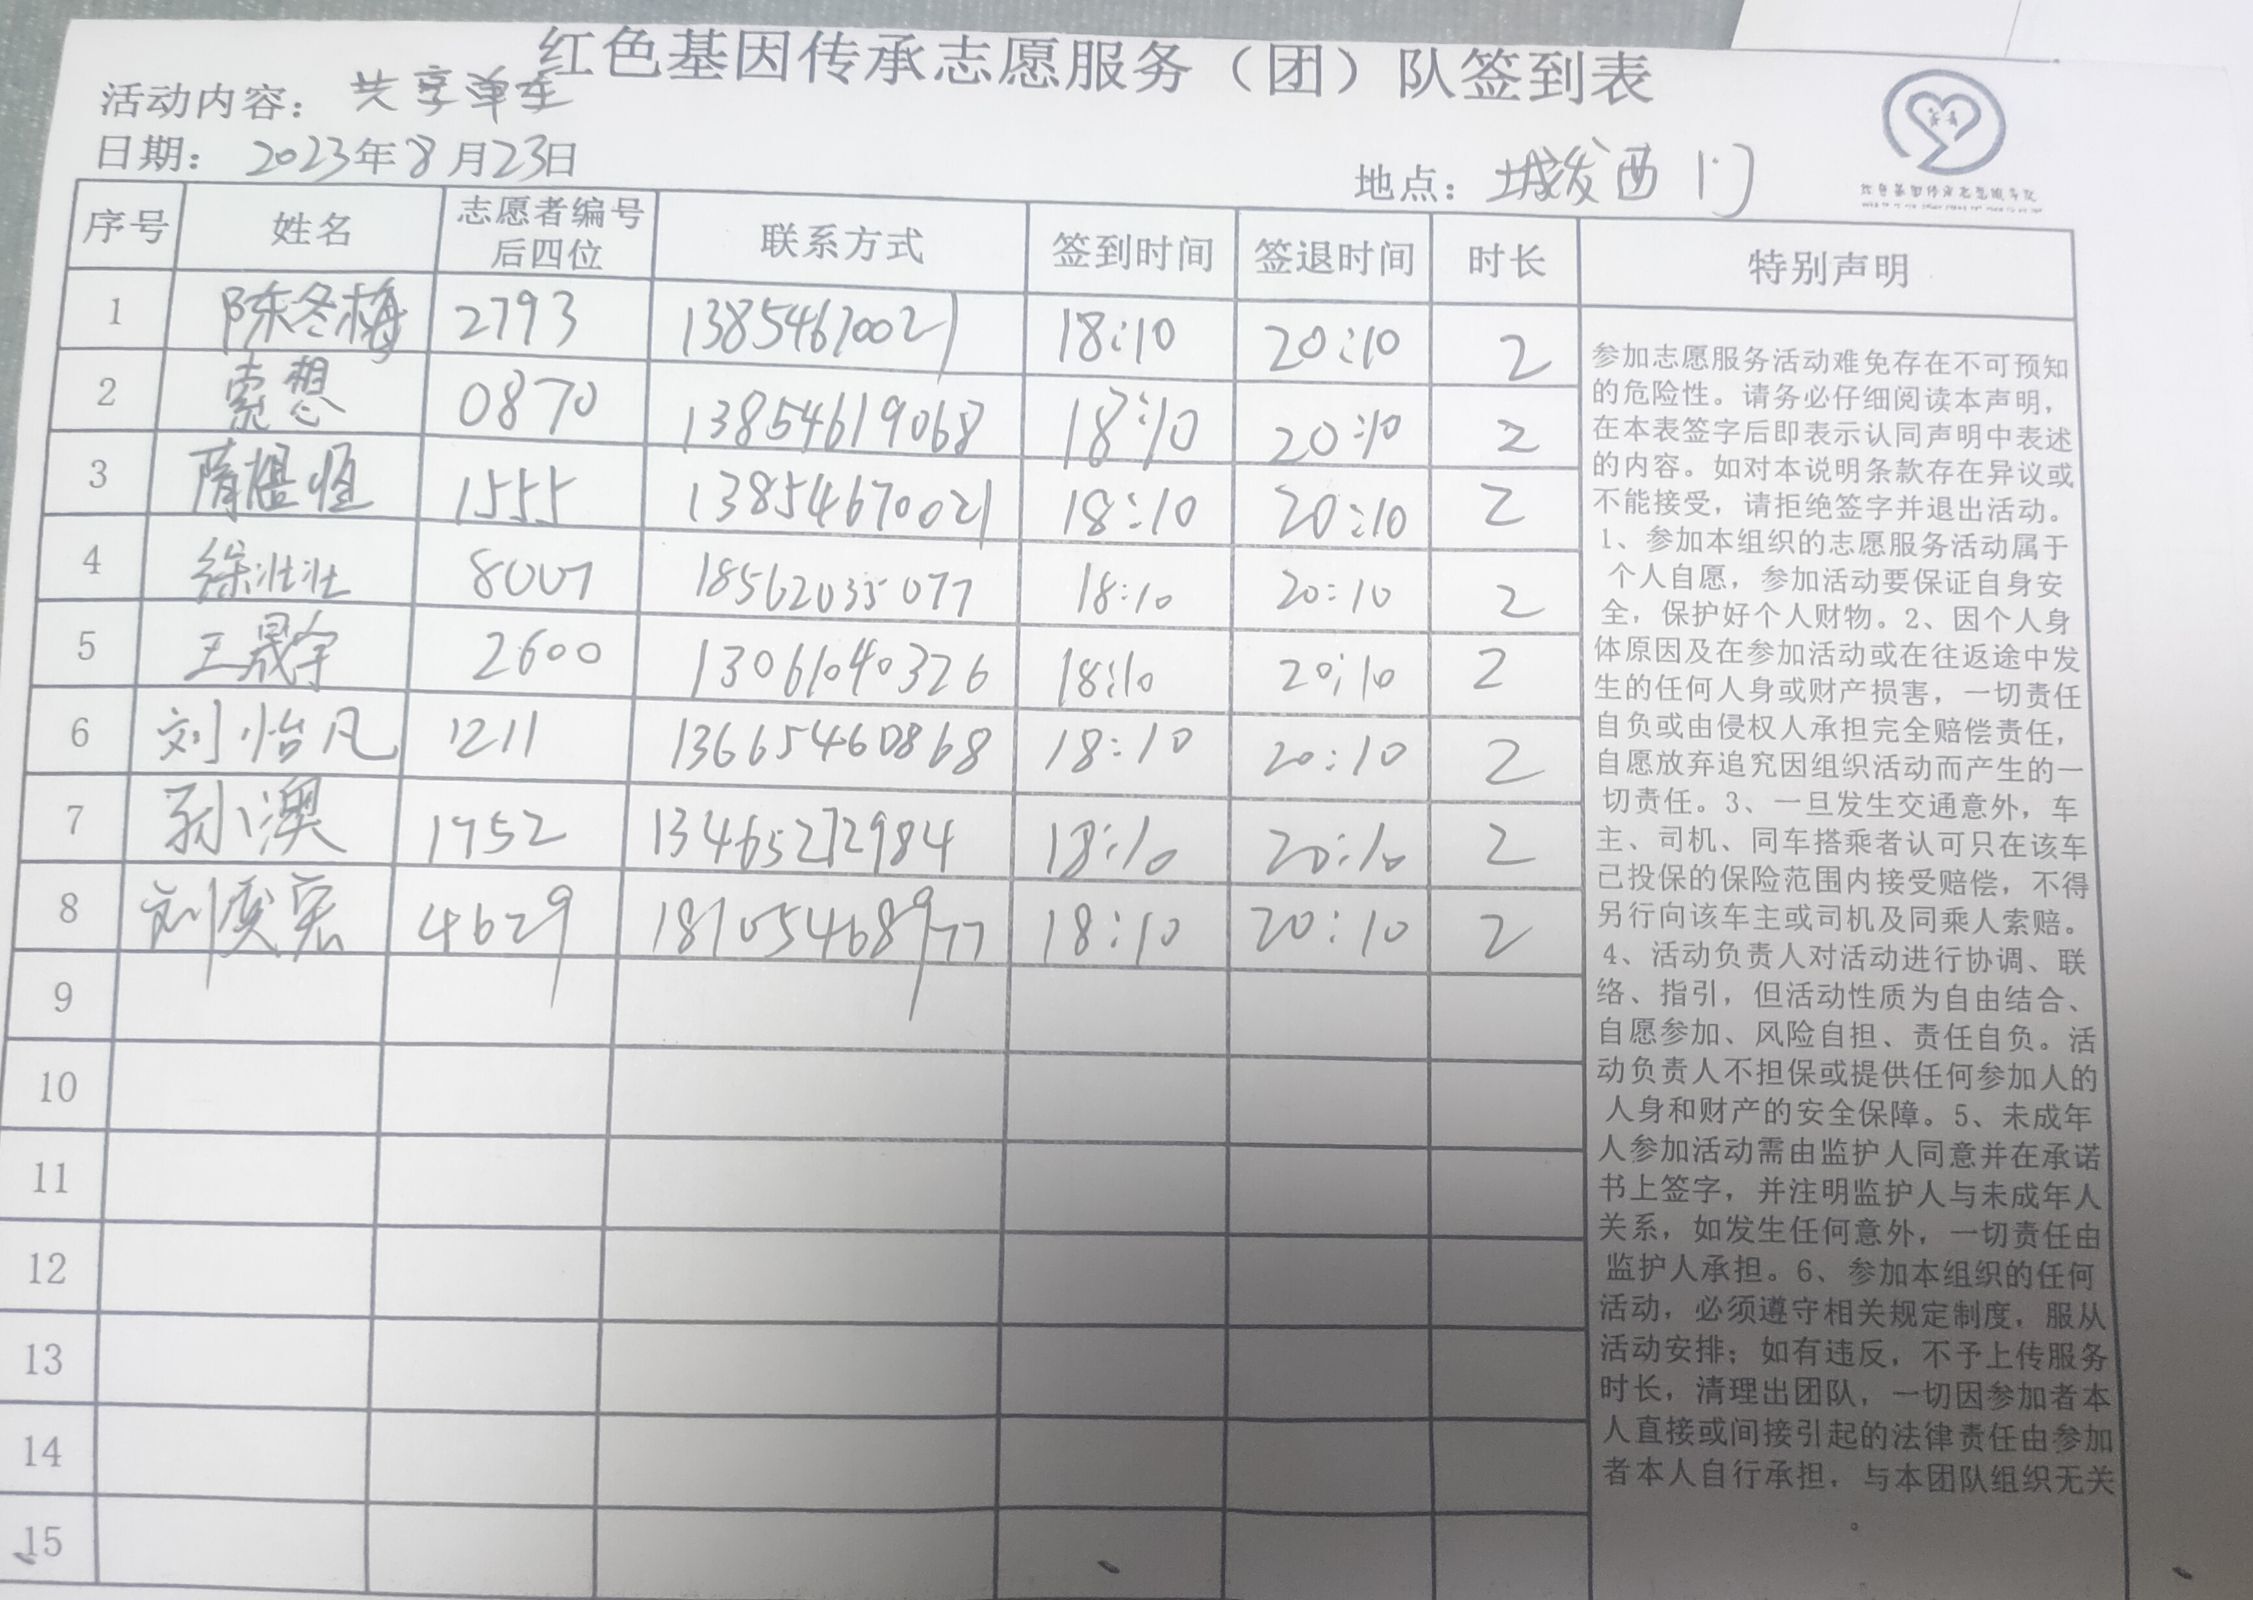 红色基因传承志愿服务（团）队签到表
活动内容：共享单车
日期：2023年8月23日
地点：城发西门
序号 姓名 志愿者编号后四位 联系方式 签到时间 签退时间 时长 特别声明
1 陈冬梅 2793 13854670021 18:10 20:10 2
2 索想 0870 13854619068 18:10 20:10 2
3 隋煜恒 1555 13854670021 18:10 20:10 2
4 徐壮壮 8007 18562035077 18:10 20:10 2
5 王晟宇 2600 13061040326 18:10 20:10 2
6 刘怡凡 1211 13665460868 18:10 20:10 2
7 孙澳 1752 13465272984 18:10 20:10 2
8 刘奕宏 4629 18705468977 18:10 20:10 2
9
10
11
12
13
14
15
参加志愿服务活动难免存在不可预知
的危险性。请务必仔细阅读本声明，
在本表签字后即表示认同声明中表述
的内容。如对本说明条款存在异议或
不能接受，请拒绝签字并退出活动。
1、参加本组织的志愿服务活动属于
个人自愿，参加活动要保证自身安
全，保护好个人财物。2、因个人身
体原因及在参加活动或在往返途中发
生的任何人身或财产损害，一切责任
自负或由侵权人承担完全赔偿责任，
自愿放弃追究因组织活动而产生的一
切责任。3、一旦发生交通意外，车
主、司机、同车搭乘者认可只在该车
已投保的保险范围内接受赔偿，不得
另行向该车主或司机及同乘人索赔。
4、活动负责人对活动进行协调、联
络、指引，但活动性质为自由结合、
自愿参加、风险自担、责任自负。活
动负责人不担保或提供任何参加人的
人身和财产的安全保障。5、未成年
人参加活动需由监护人同意并在承诺
书上签字，并注明监护人与未成年人
关系，如发生任何意外，一切责任由
监护人承担。6、参加本组织的任何
活动，必须遵守相关规定制度，服从
活动安排；如有违反，不予上传服务
时长，清理出团队，一切因参加者本
人直接或间接引起的法律责任由参加
者本人自行承担，与本团队组织无关
。